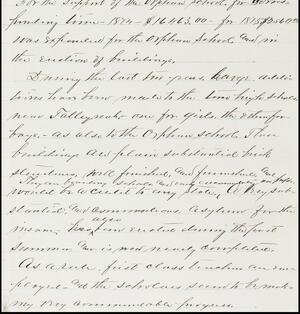 For the support of the Orphan Schools for
ponding time - 1874 - $16463.00 - for 1875
was expended for the Orphan Schools and in
the erection of buildings.
During the last two years large addi
tions have been made to the two high schools
near Tallequah one for girls, the other for
boys - as also to the Orphan school. These
buildings are plain substantial brick
structures, well finished, and furnished and
They are boarding schools and
would be a credit to any State. A very sub
stantial, and commodious Asylum for the
insane, has also been erected during the past
summer and is now nearly completed.
As a rule first class teachers are em
ployed - and the scholars seem to be mak
ing very commendable progress.